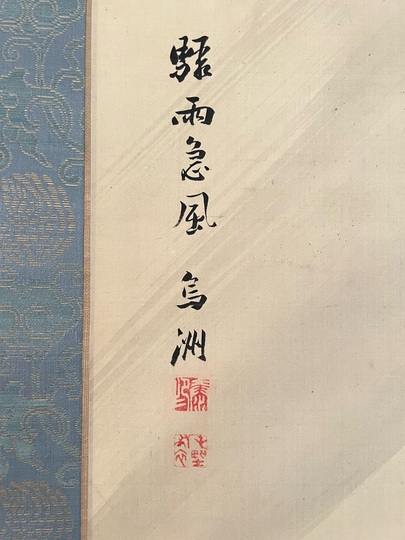 驟雨急風 烏洲